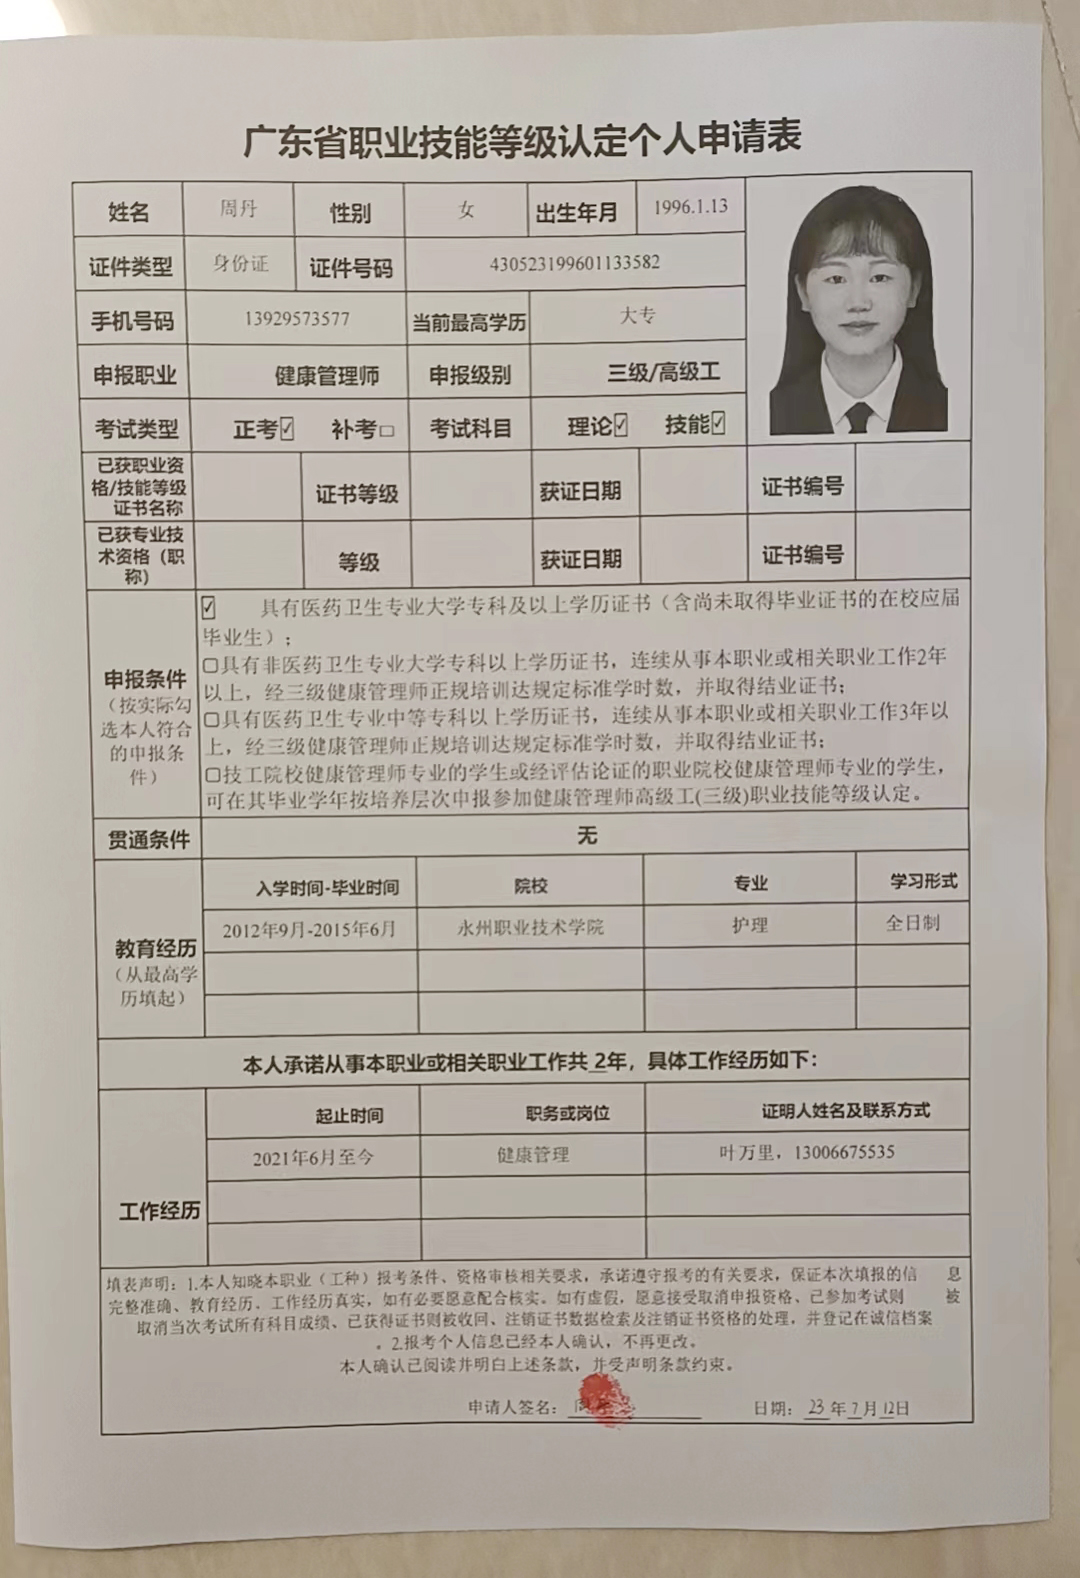 广东省职业技能等级认定个人申请表
姓名 周丹 性别 女 出生年月 1996.1.13
证件类型 身份证 证件号码 430523199601133582
手机号码 13929573577 当前最高学历 大专
申报职业 健康管理师 申报级别 三级/高级工
考试类型 正考☑ 补考□ 考试科目 理论☑ 技能☑
已获职业资
格/技能等级
证书名称
证书等级 获证日期 证书编号
已获专业技
术资格（职
称）
等级 获证日期 证书编号
申报条件
（按实际勾
选本人符合
的申报条
件）
☑ 具有医药卫生专业大学专科及以上学历证书（含尚未取得毕业证书的在校应届
毕业生）；
□具有非医药卫生专业大学专科以上学历证书，连续从事本职业或相关职业工作2年
以上，经三级健康管理师正规培训达规定标准学时数，并取得结业证书；
□具有医药卫生专业中等专科以上学历证书，连续从事本职业或相关职业工作3年以
上，经三级健康管理师正规培训达规定标准学时数，并取得结业证书；
□技工院校健康管理师专业的学生或经评估论证的职业院校健康管理师专业的学生，
可在其毕业学年按培养层次申报参加健康管理师高级工(三级)职业技能等级认定。
贯通条件 无
教育经历
（从最高学
历填起）
入学时间-毕业时间 院校 专业 学习形式
2012年9月-2015年6月 永州职业技术学院 护理 全日制
本人承诺从事本职业或相关职业工作共 2年，具体工作经历如下：
工作经历
起止时间 职务或岗位 证明人姓名及联系方式
2021年6月至今 健康管理 叶万里，13006675535
填表声明：1.本人知晓本职业（工种）报考条件、资格审核相关要求，承诺遵守报考的有关要求，保证本次填报的信 息
完整准确、教育经历、工作经历真实，如有必要愿意配合核实。如有虚假，愿意接受取消申报资格、已参加考试则 被
取消当次考试所有科目成绩、已获得证书则被收回、注销证书数据检索及注销证书资格的处理，并登记在诚信档案
。2.报考个人信息已经本人确认，不再更改。
本人确认已阅读并明白上述条款，并受声明条款约束。
申请人签名： 周 日期：23年7月12日